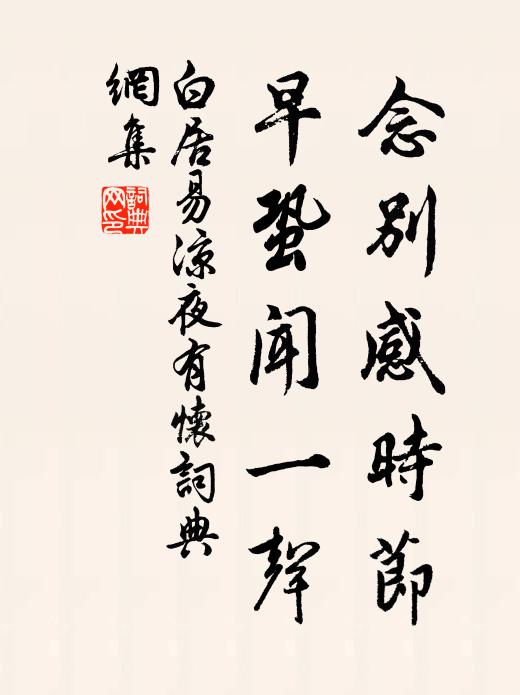 念別感時節
早蛩聞一聲
白居易凉夜有懷詞典
網集
詞典網印